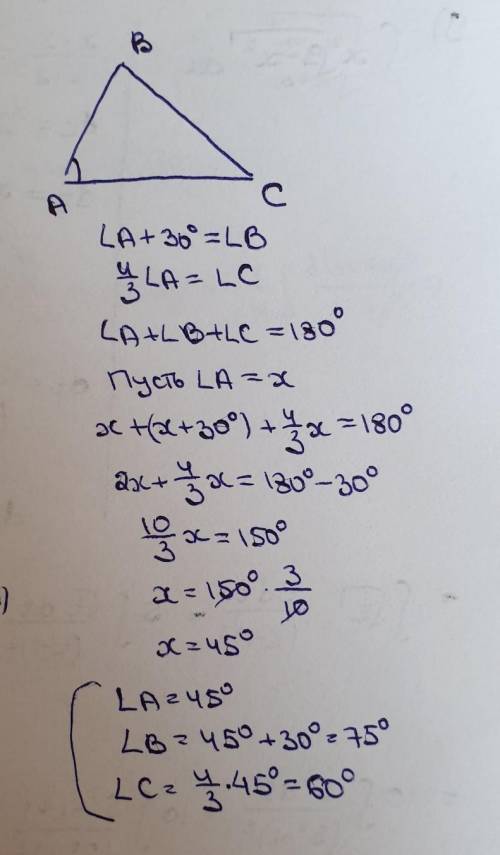 B
A
C
∠A+30°=∠B
4/3∠A=∠C
∠A+∠B+∠C=180°
Пусть ∠A=x
x+(x+30°)+4/3x=180°
2x+4/3x=180°-30°
10/3x=150°
x=150°·3/10
x=45°
∠A=45°
∠B=45°+30°=75°
∠C=4/3·45°=60°